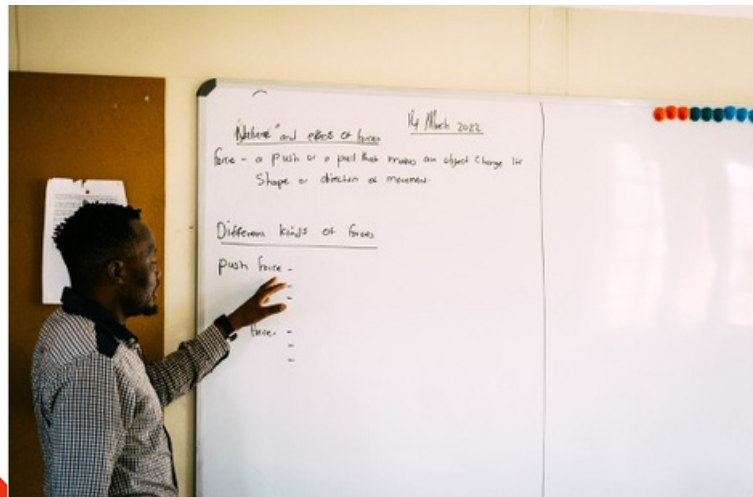 14 March 2022
"Nature" and effect of forces
force - a push or a pull that makes an object change its
Shape or direction of movement.
Different kinds of forces
push force -
-
-
force. -
-
-